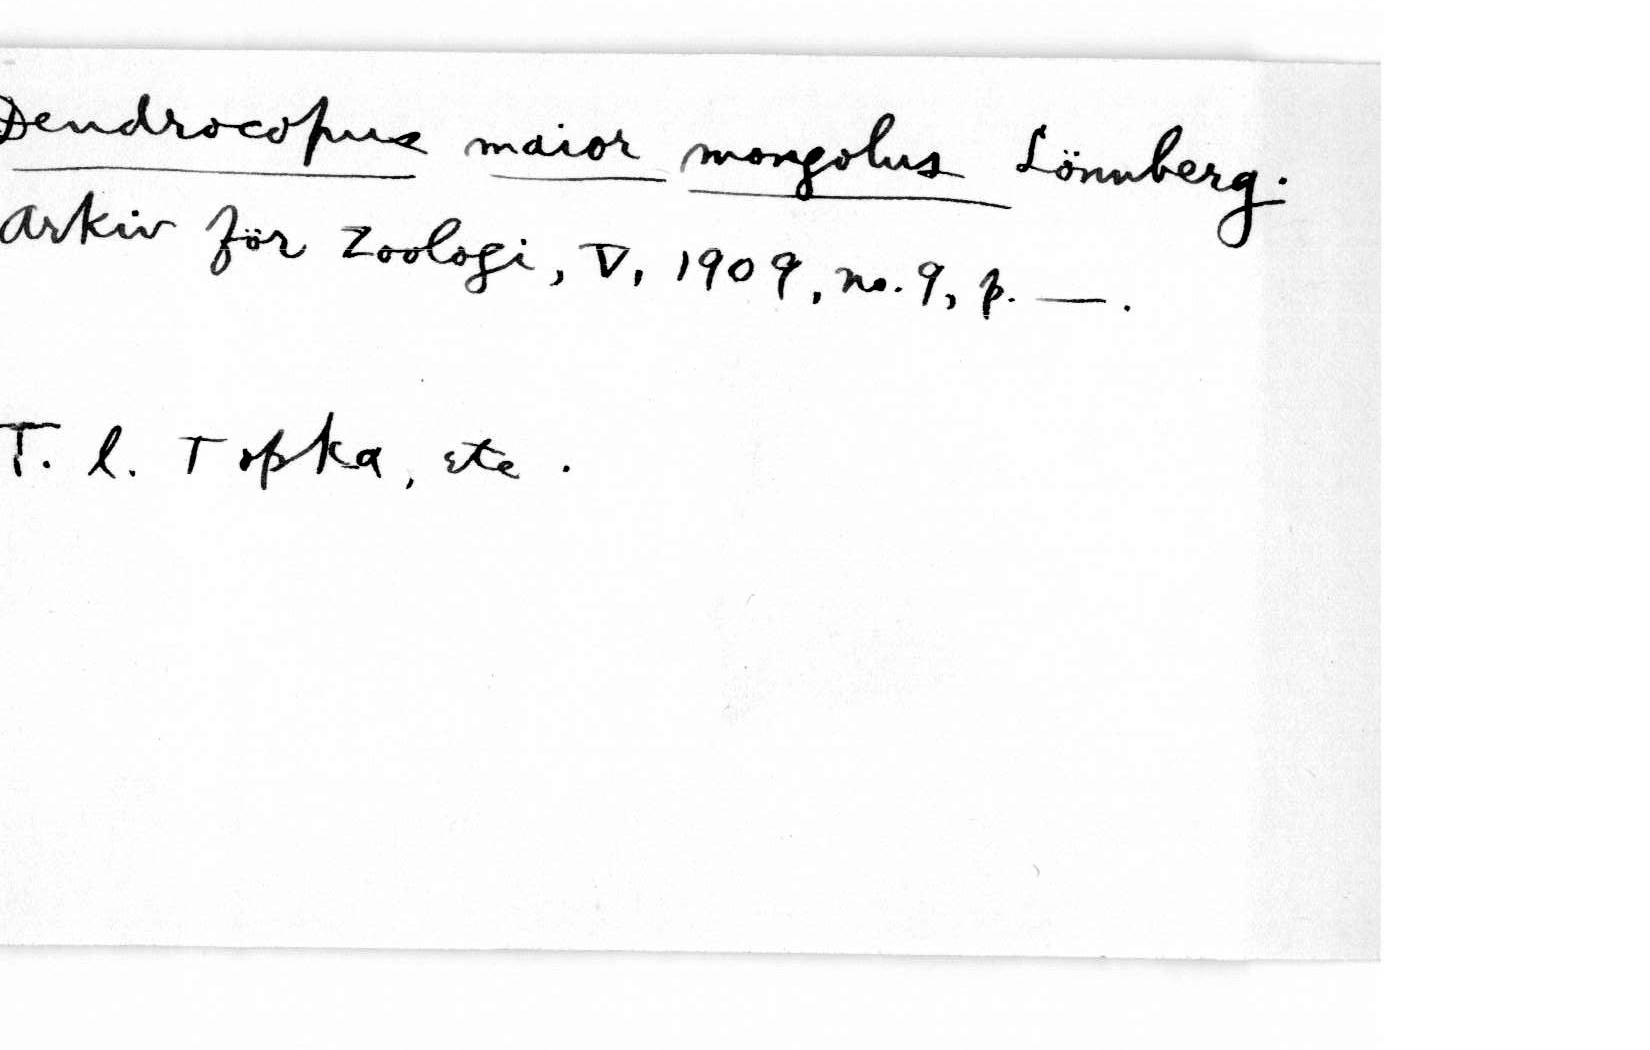 Dendrocopus maior mongolus Lönnberg.
Arkiv för Zoologi, V, 1909, no. 9, p. —.
T. l. Topka, etc.